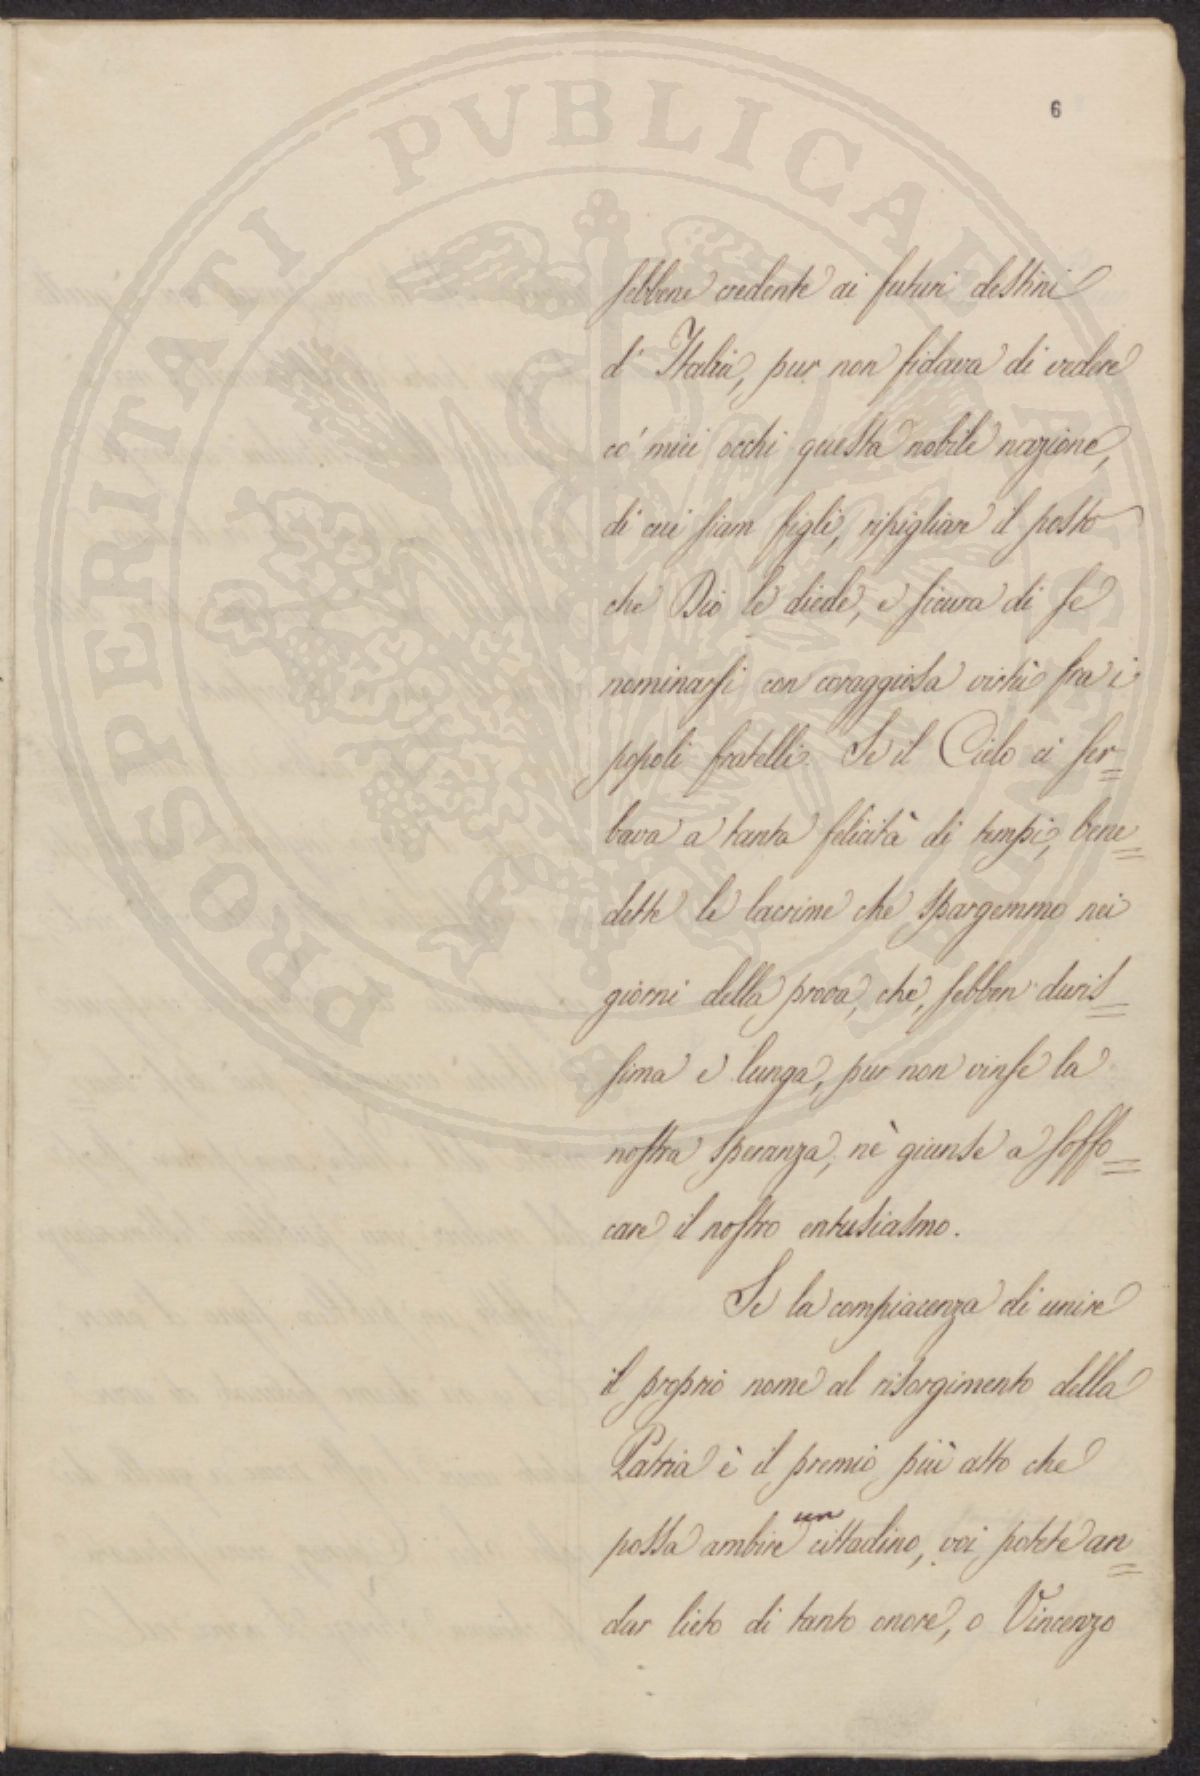 6
sebbene credente ai futuri destini
d' Italia, pur non fidava di vedere
co' miei occhi questa nobile nazione,
di cui siam figli, ripigliare il posto
che Dio le diede, e sicura di se
nominarsi con coraggiosa virtù fra i
popoli fratelli. Se il Cielo ci ser=
bava a tanta felicità di tempi, bene=
dette le lacrime che spargemmo nei
giorni della prova, che, sebben duris=
sima e lunga, pur non vinse la
nostra speranza, nè giunse a soffo=
care il nostro entusiasmo.
Se la compiacenza di unire
il proprio nome al risorgimento della
Patria è il premio più alto che
possa ambire un cittadino, voi potete an=
dar lieto di tanto onore, o Vincenzo
PROSPERITATI PVBLICAE AVGENDAE